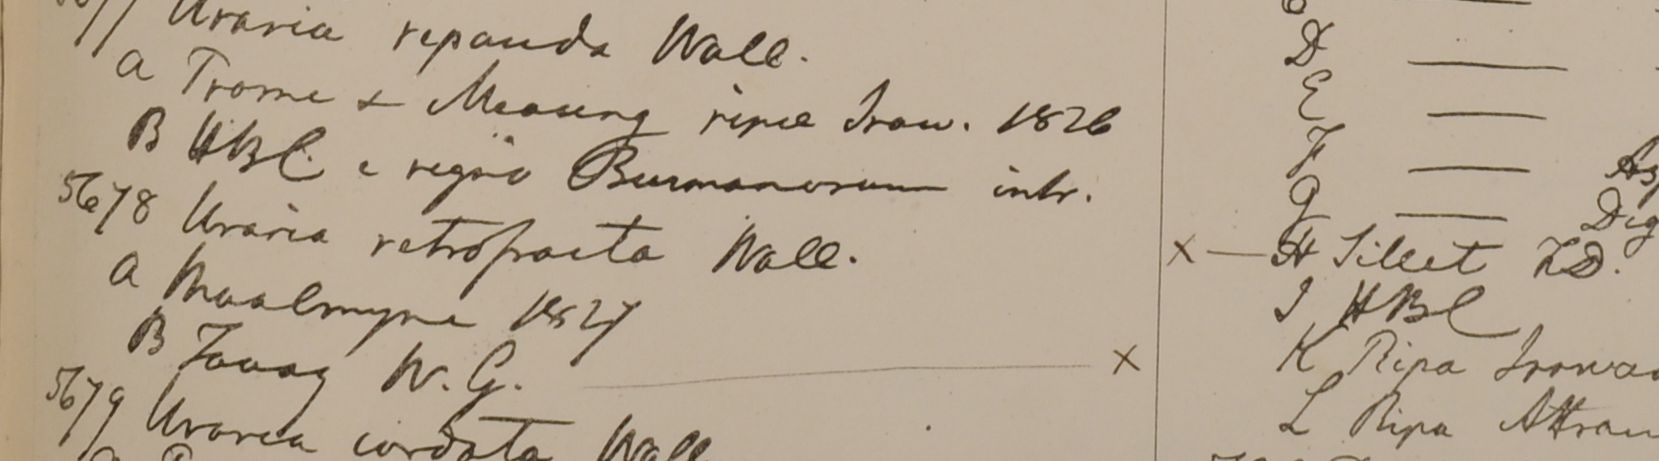 5677 Uraria repanda Wall.
a Prome & Meaung ripae Iraw. 1826
B HBC e regno Burmanorum intr.
5678 Uraria retrofracta Wall.
a Moalmyne 1827
B Tavoy W. G. ——— x
5679 Uraria cordata Wall
D ———
E ———
F ———
G ——— Dig
x — H Sillet FD.
I HBC
K Ripa Irawad
L Ripa Attran